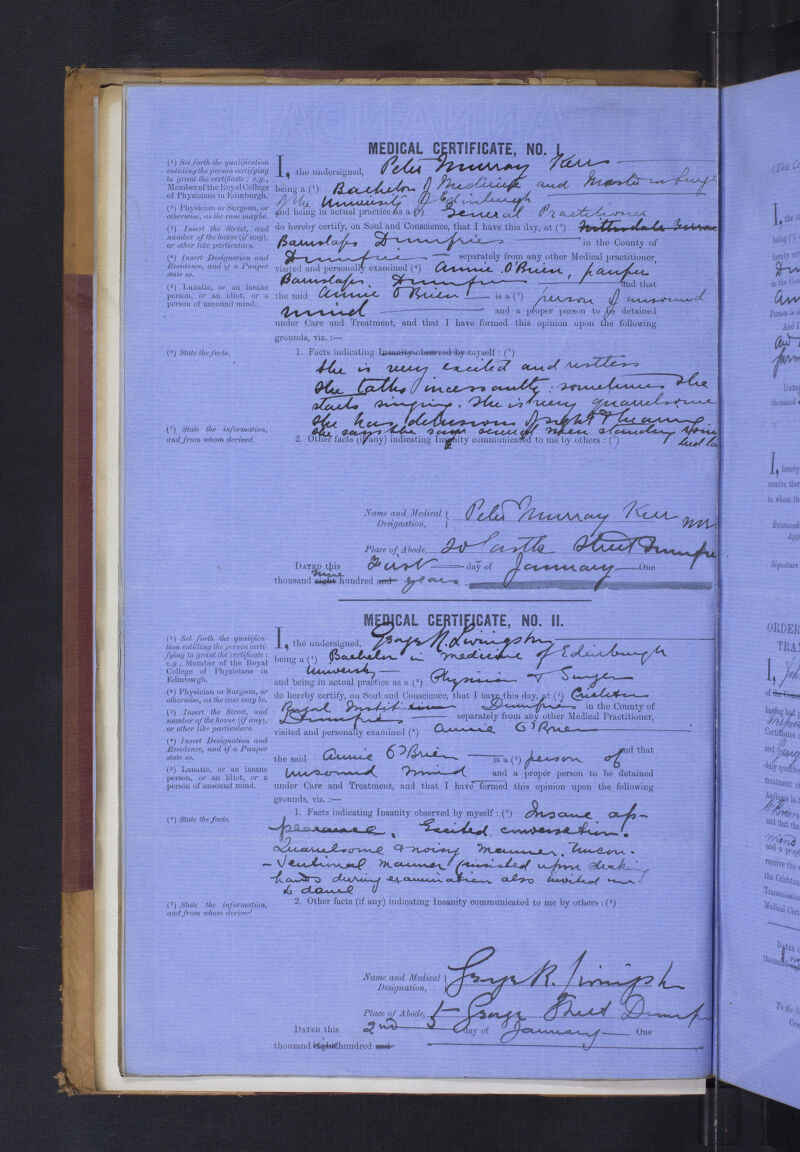 MEDICAL CERTIFICATE, NO. I.
(¹) Set forth the qualification
entitling the person certifying
to grant the certificate; e.g.,
Member of the Royal College
of Physicians in Edinburgh.
(²) Physician or Surgeon, or
otherwise, as the case may be.
(³) Insert the Street, and
number of the house (if any),
or other like particulars.
(⁴) Insert Designation and
Residence, and if a Pauper
state so.
(⁵) Lunatic, or an insane
person, or an idiot, or a
person of unsound mind.
I, the undersigned, Peter Murray Kerr
being a (¹) Bachelor of Medicine and Master in Surge
of the University of Edinburgh
and being in actual practice as a (²) General Practitioner
do hereby certify, on Soul and Conscience, that I have this day, at (³) Nithsdale
Barnslaps Dumfries in the County of
Dumfries separately from any other Medical practitioner,
visited and personally examined (⁴) Annie O'Brien, pauper
Barnslaps, Dumfries and that
the said Annie O'Brien is a (⁵) person of unsound
mind and a proper person to be detained
under Care and Treatment, and that I have formed this opinion upon the following
grounds, viz. :—
(⁶) State the facts.
1. Facts indicating Insanity observed by myself : (⁶)
She is very excited and restless
She talks incessantly: sometimes she
starts singing. She is very quarrelsome
She has delusions of sight & hearing
she says she saw several men standing
(⁷) State the information,
and from whom derived.
2. Other facts (if any) indicating Insanity communicated to me by others : (⁷)
Name and Medical
Designation, Peter Murray Kerr
Place of Abode, 20 Castle Street Dumfrie
DATED this First day of January One
thousand eight nine hundred and years
MEDICAL CERTIFICATE, NO. II.
(¹) Set forth the qualifica-
tion entitling the person certi-
fying to grant the certificate ;
e.g., Member of the Royal
College of Physicians in
Edinburgh.
(²) Physician or Surgeon, or
otherwise, as the case may be.
(³) Insert the Street, and
number of the house (if any),
or other like particulars.
(⁴) Insert Designation and
Residence, and if a Pauper
state so.
(⁵) Lunatic, or an insane
person, or an idiot, or a
person of unsound mind.
I, the undersigned, George R. Livingston
being a (¹) Bachelor in medicine of Edinburgh
University
and being in actual practice as a (²) Physician & Surgeon
do hereby certify, on Soul and Conscience, that I have this day, at (³) Crichton
Royal Institution Dumfries in the County of
Dumfries separately from any other Medical Practitioner,
visited and personally examined (⁴) Annie O'Brien
and that
the said Annie O'Brien is a (⁵) person of
unsound mind and a proper person to be detained
under Care and Treatment, and that I have formed this opinion upon the following
grounds, viz. :—
(⁶) State the facts.
1. Facts indicating Insanity observed by myself : (⁶) Insane ap-
pearance. Excited conversation.
Quarrelsome & noisy manner. Uncon-
-ventional manner (insisted upon shaking
hands during examination also invited me
to dance
(⁷) State the information,
and from whom derived
2. Other facts (if any) indicating Insanity communicated to me by others : (⁷)
Name and Medical
Designation, George R. Livingston
Place of Abode, 5 George Street Dumfr
DATED this 2nd day of January One
thousand eight hundred and